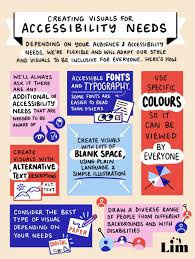 CREATING VISUALS FOR
ACCESSIBILITY NEEDS
DEPENDING ON YOUR AUDIENCE & ACCESSIBILITY
NEEDS, WE'RE FLEXIBLE AND WILL ADAPT OUR STYLE
AND VISUALS TO BE INCLUSIVE FOR EVERYONE. HERE'S HOW:
WE'LL ALWAYS
ASK IF THERE
ARE ANY
ADDITIONAL OR
ACCESSIBILITY
NEEDS THAT
ARE NEEDED TO
BE AWARE OF
ACCESSIBLE FONTS
AND TYPOGRAPHY.
SOME FONTS ARE
EASIER TO READ
THAN OTHERS
USE
SPECIFIC
COLOURS
SO IT CAN
BE VIEWED
BY
EVERYONE
CREATE
VISUALS WITH
ALTERNATIVE
TEXT
DESCRIPTIONS
CREATE VISUALS
WITH LOTS OF
BLANK SPACE,
USING PLAIN &
SIMPLE
ILLUSTRATION
CONSIDER THE BEST
TYPE OF VISUAL
DEPENDING ON
YOUR NEEDS
DIGITAL
PAPER
DRAW A DIVERSE RANGE
OF PEOPLE FROM DIFFERENT
BACKGROUNDS AND WITH
DISABILITIES